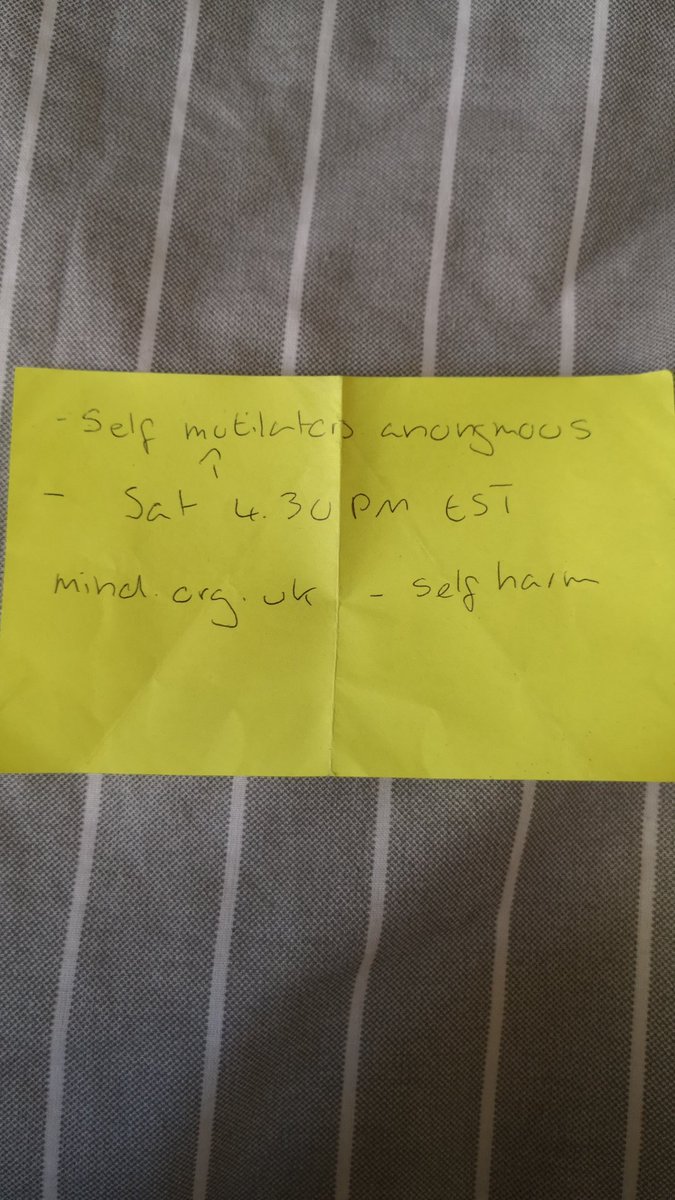 - Self mutilators anonymous
^
- Sat 4.30 PM EST
mind.org.uk - self harm